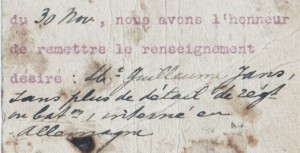 du 30 Nov, nous avons l'honneur
de remettre le renseignement
désiré : Guillaume Jans,
sans plus de détail de régt
ni baton, interné en
Allemagne